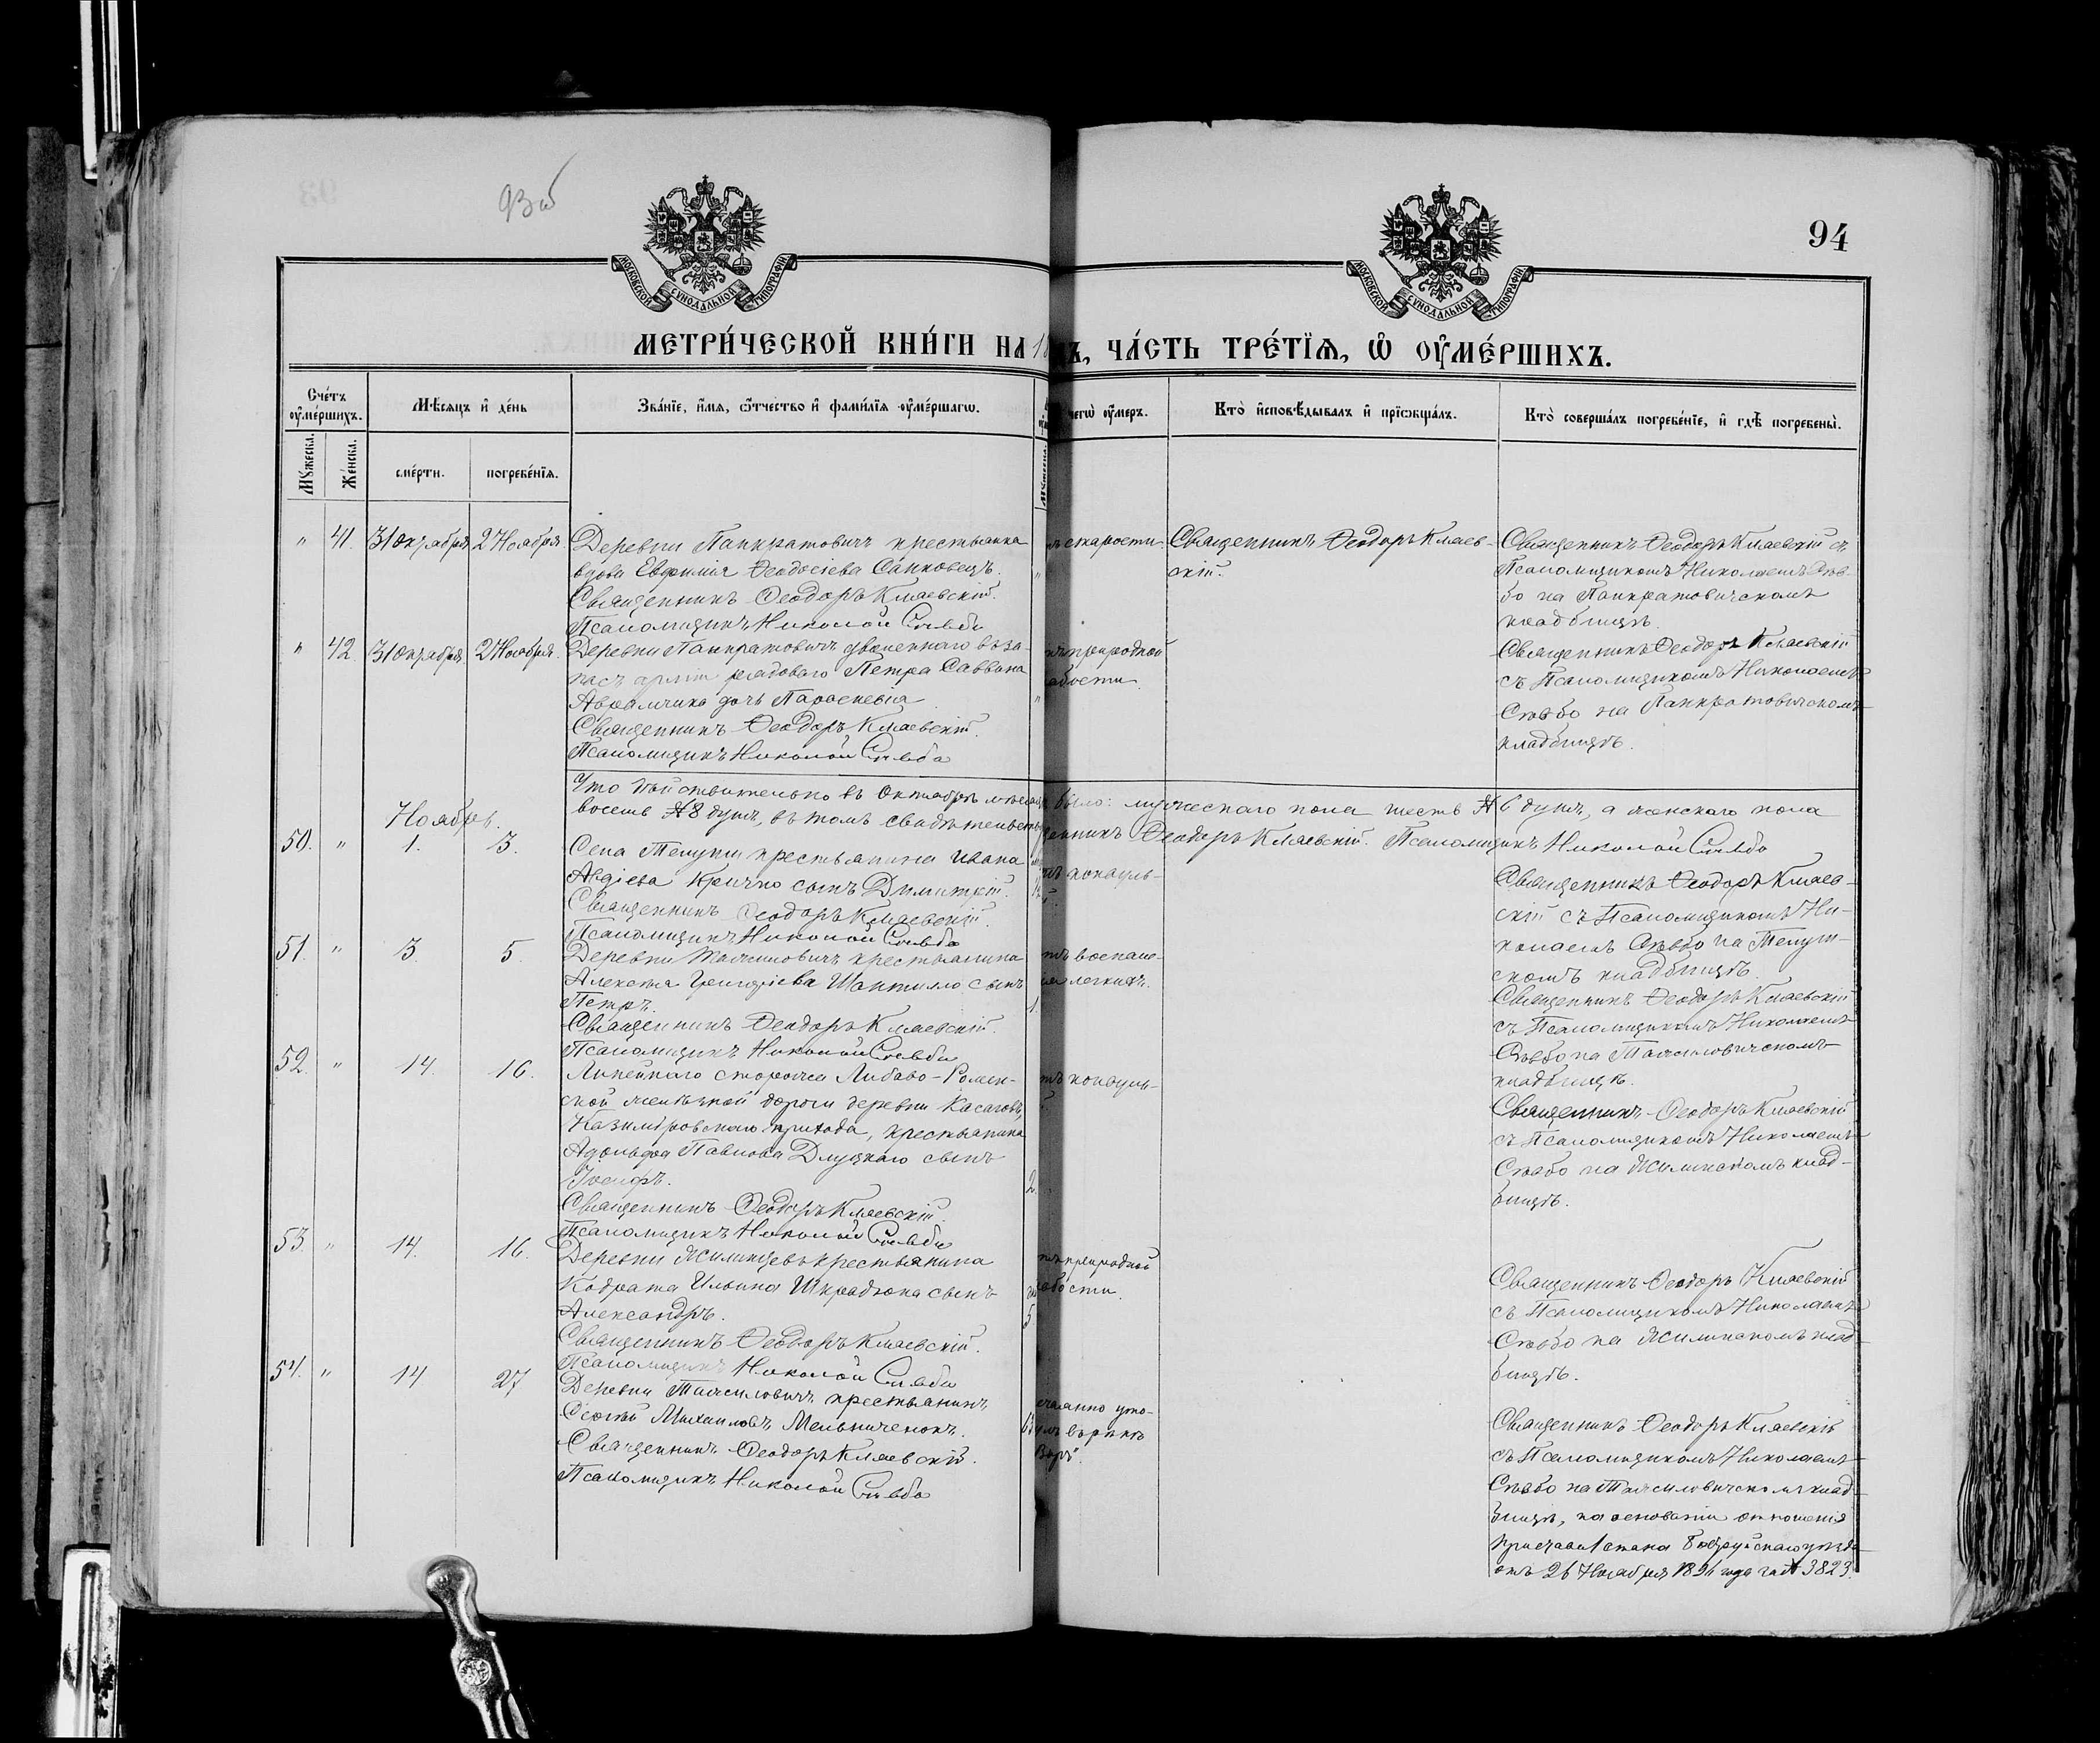 93 об
94
МОСКОВСКОЙ СѴНОДАЛЬНОЙ ТИПОГРАФІИ
МОСКОВСКОЙ СѴНОДАЛЬНОЙ ТИПОГРАФІИ
МЕТРИ́ЧЕСКОЙ КНИ́ГИ НА 18
Ъ, ЧА́СТЬ ТРЕ́ТЇѦ, Ѽ ОУ҆МЕ́РШИХЪ.
Сче́тъ оу҆ме́ршихъ.
Мѣ́сѧцъ и҆ де́нь
Зва́нїе, и҆́мѧ, ѻ҆́тчество и҆ фами́лїѧ оу҆ме́ршагѡ.
чегѡ̀ оу҆́меръ.
Кто̀ и҆сповѣ́дывалъ и҆ прїѡбща́лъ.
Кто̀ соверша́лъ погребе́нїе, и҆ гдѣ̀ погребены̀.
Мꙋ́жеска.
Же́нска.
сме́рти.
погребе́нїѧ.
" 41. 31 Октября 2 Ноября. Деревни Панкратовичъ крестьянка
вдова Евфимія Ѳеодосіева Санковецъ.
Священникъ Ѳеодоръ Кляевскій.
Псаломщикъ Николай Сльбо
ъ старости.
Священникъ Ѳеодоръ Кляев-
скій.
Священникъ Ѳеодоръ Кляевскій съ
Псаломщикомъ Николаемъ
бо на Панкратовичскомъ
кладбищѣ.
" 42 31 Октября 2 Ноября. Деревни Панкратовичъ уволеннаго въ за-
пасъ арміи рядоваго Петра Саввина
Авраамчика дочь Параскевіа
Священникъ Ѳеодоръ Кляевскій.
Псаломщикъ Николай Сльбо
ъ природной
абости.
Священникъ Ѳеодоръ Кляевскій
съ Псаломщикомъ Николаемъ
на Панкратовичскомъ
кладбищѣ.
Что дѣйствительно въ Октябрѣ мѣсяцѣ было: мужескаго пола шесть № 6 душъ, а женскаго пола
восемь № 8 душъ, въ томъ свидѣтельств
енникъ Ѳеодоръ Кляевскій. Псаломщикъ Николай Сльбо
Ноябрь.
50. " 1. 3. Села Телуши крестьянина Ивана
Авдіева Кричко сынъ Димитрій.
Священникъ Ѳеодоръ Кляевскій.
Псаломщикъ Николай Сльбо
Священникъ Ѳеодоръ Кляев-
скій съ Псаломщикомъ Ни-
колаемъ на Телуш-
скомъ кладбищѣ.
51. " 3. 5. Деревни крестьянина
Алексѣя Григоріева сынъ
Петръ.
Священникъ Ѳеодоръ Кляевскій.
Псаломщикъ Николай Сльбо
1.
тъ воспале-
легкихъ.
Священникъ Ѳеодоръ Кляевскій
съ Псаломщикомъ Николаемъ
на
кладбищѣ.
52. " 14. 16. Линейнаго сторожа Либаво-Ромен-
ской желѣзной дороги деревни
Казимировскаго прихода, крестьянина
Адольфа Павлова Длуцкаго сынъ
Іосифъ.
Священникъ Ѳеодоръ Кляевскій.
Псаломщикъ Николай Сльбо
2.
Священникъ Ѳеодоръ Кляевскій
съ Псаломщикомъ Николаемъ
на Жилинскомъ клад-
бищѣ.
53. " 14. 16. Деревни Жилинцевъ крестьянина
Кодрата Ильина Шкрадюка сынъ
Александръ.
Священникъ Ѳеодоръ Кляевскій.
Псаломщикъ Николай Сльбо
5
тъ природной
абости.
Священникъ Ѳеодоръ Кляевскій
съ Псаломщикомъ Николаемъ
на Жилинскомъ клад-
бищѣ.
54. " 14 27 Деревни крестьянинъ
Михаиловъ Мельниченокъ.
Священникъ Ѳеодоръ Кляевскій.
Псаломщикъ Николай Сльбо
63
ечаянно уто-
улъ въ рѣкѣ
Священникъ Ѳеодоръ Кляевскій
съ Псаломщикомъ Николаемъ
на клад-
бищѣ, на основаніи отношенія
Пристава 1 стана Бобруйскаго уѣзда
отъ 26 Ноября 1896 года за № 3823.